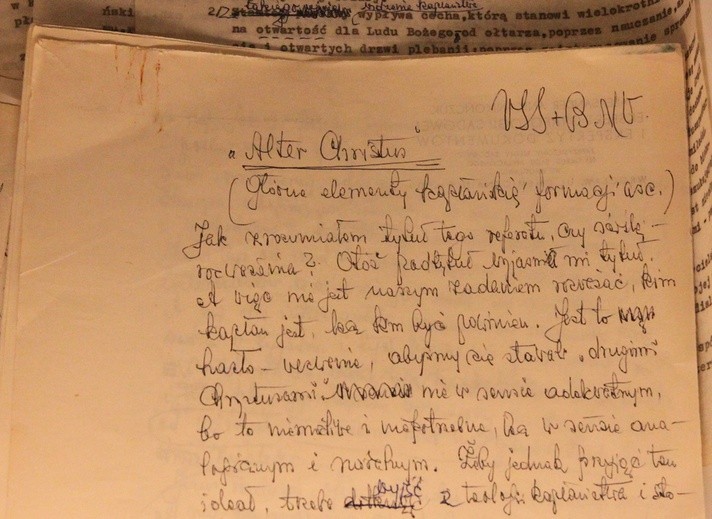 wypływa cecha, którą stanowi wielokrotn
na otwartość dla Ludu Bożego: od ołtarza, poprzez nauczanie,
i otwartych drzwi plebanii; poprzez
VSS + BNV.
"Alter Christus"
(Główne elementy kapłańskiej formacji asc.)
Jak zrozumiałem tytuł tego referatu, czy
rozważania? Otóż podtytuł wyjaśnił mi tytuł.
A więc nie jest naszym zadaniem rozważać, kim
kapłan jest, lecz kim być powinien. Jest to
hasło - wezwanie, abyśmy się stawali "drugimi
Chrystusami" nie w sensie adekwatnym,
bo to niemożliwe i niepotrzebne, lecz w sensie ana-
logicznym i Żeby jednak przyjąć ten
ideał, trzeba wyjść z teologii kapłaństwa i